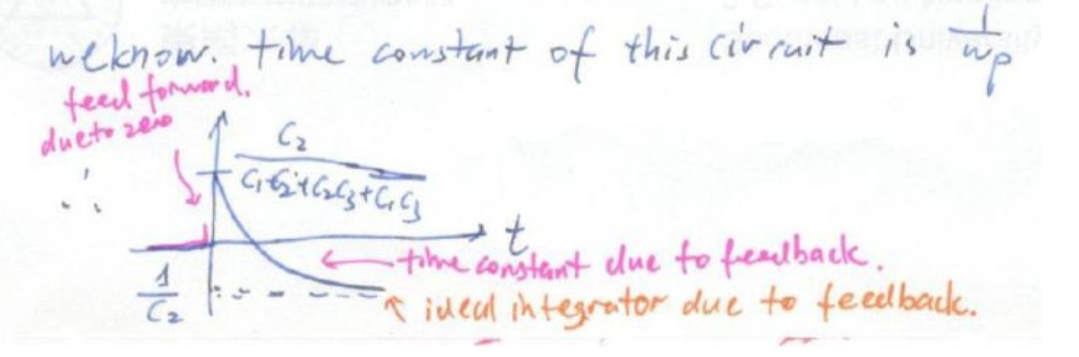 we know. time constant of this circuit is 1/wp
feed forward.
due to zero
∴
C2
C1C2+C2C3+C1C3
t
← time constant due to feedback.
1/C2
↖ ideal integrator due to feedback.